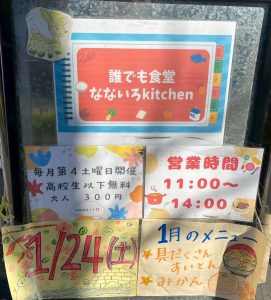 誰でも食堂
なないろkitchen
毎月第4土曜日開催
高校生以下無料
大人 300円
営業時間
11:00〜
14:00
1/24(土)
1月のメニュー
★具だくさん
すいとん
★みかん